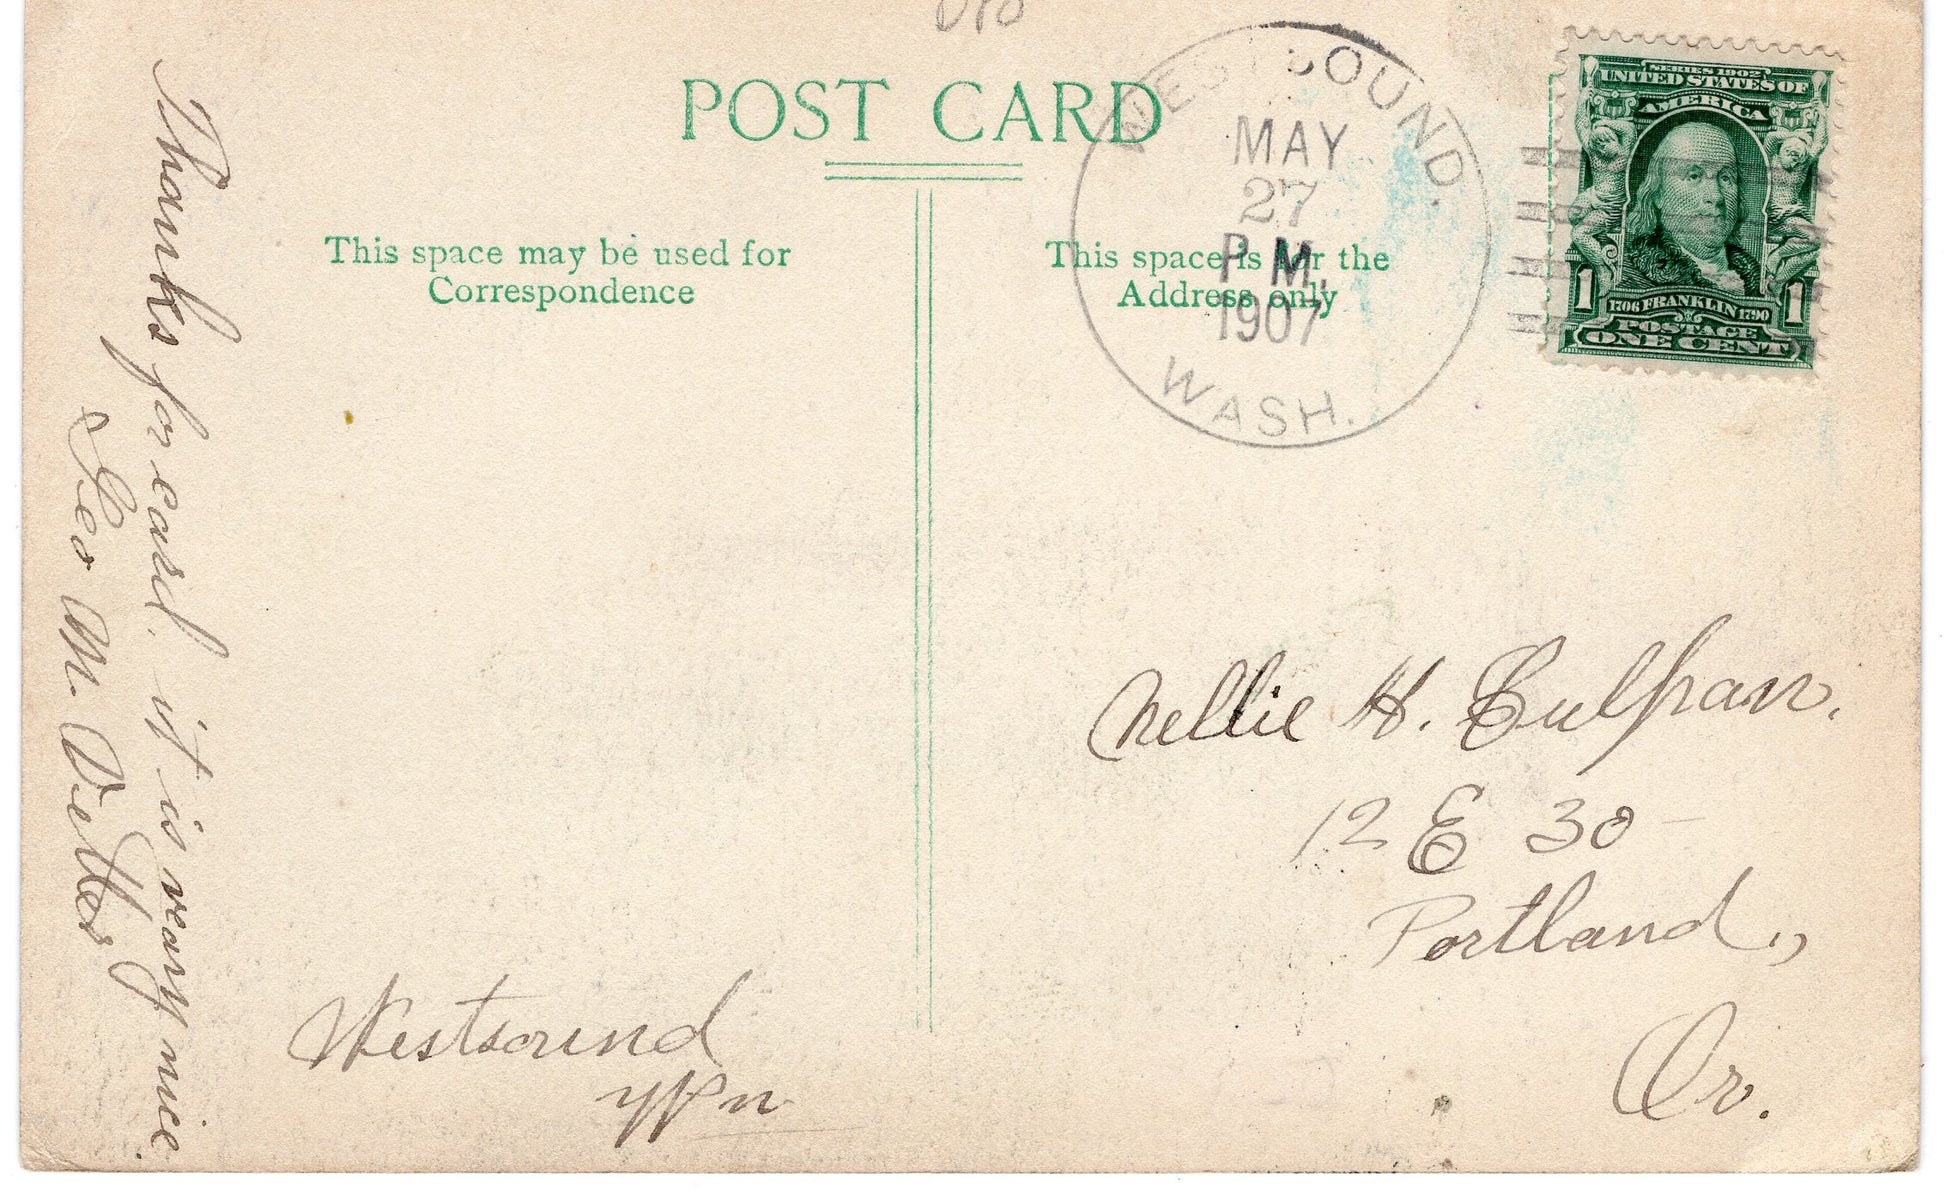 POST CARD
This space may be used for
Correspondence
This space is for the
Address only
WEST SOUND.
MAY
27
P M.
1907
WASH.
SERIES 1902
UNITED STATES OF
AMERICA
1 1
1706 FRANKLIN 1790
POSTAGE
ONE CENT
Thanks for card. it is very nice.
Geo M. Vetter
Westsound
Wn
Nellie H. Culpan.
12 E 30
Portland.,
Or.